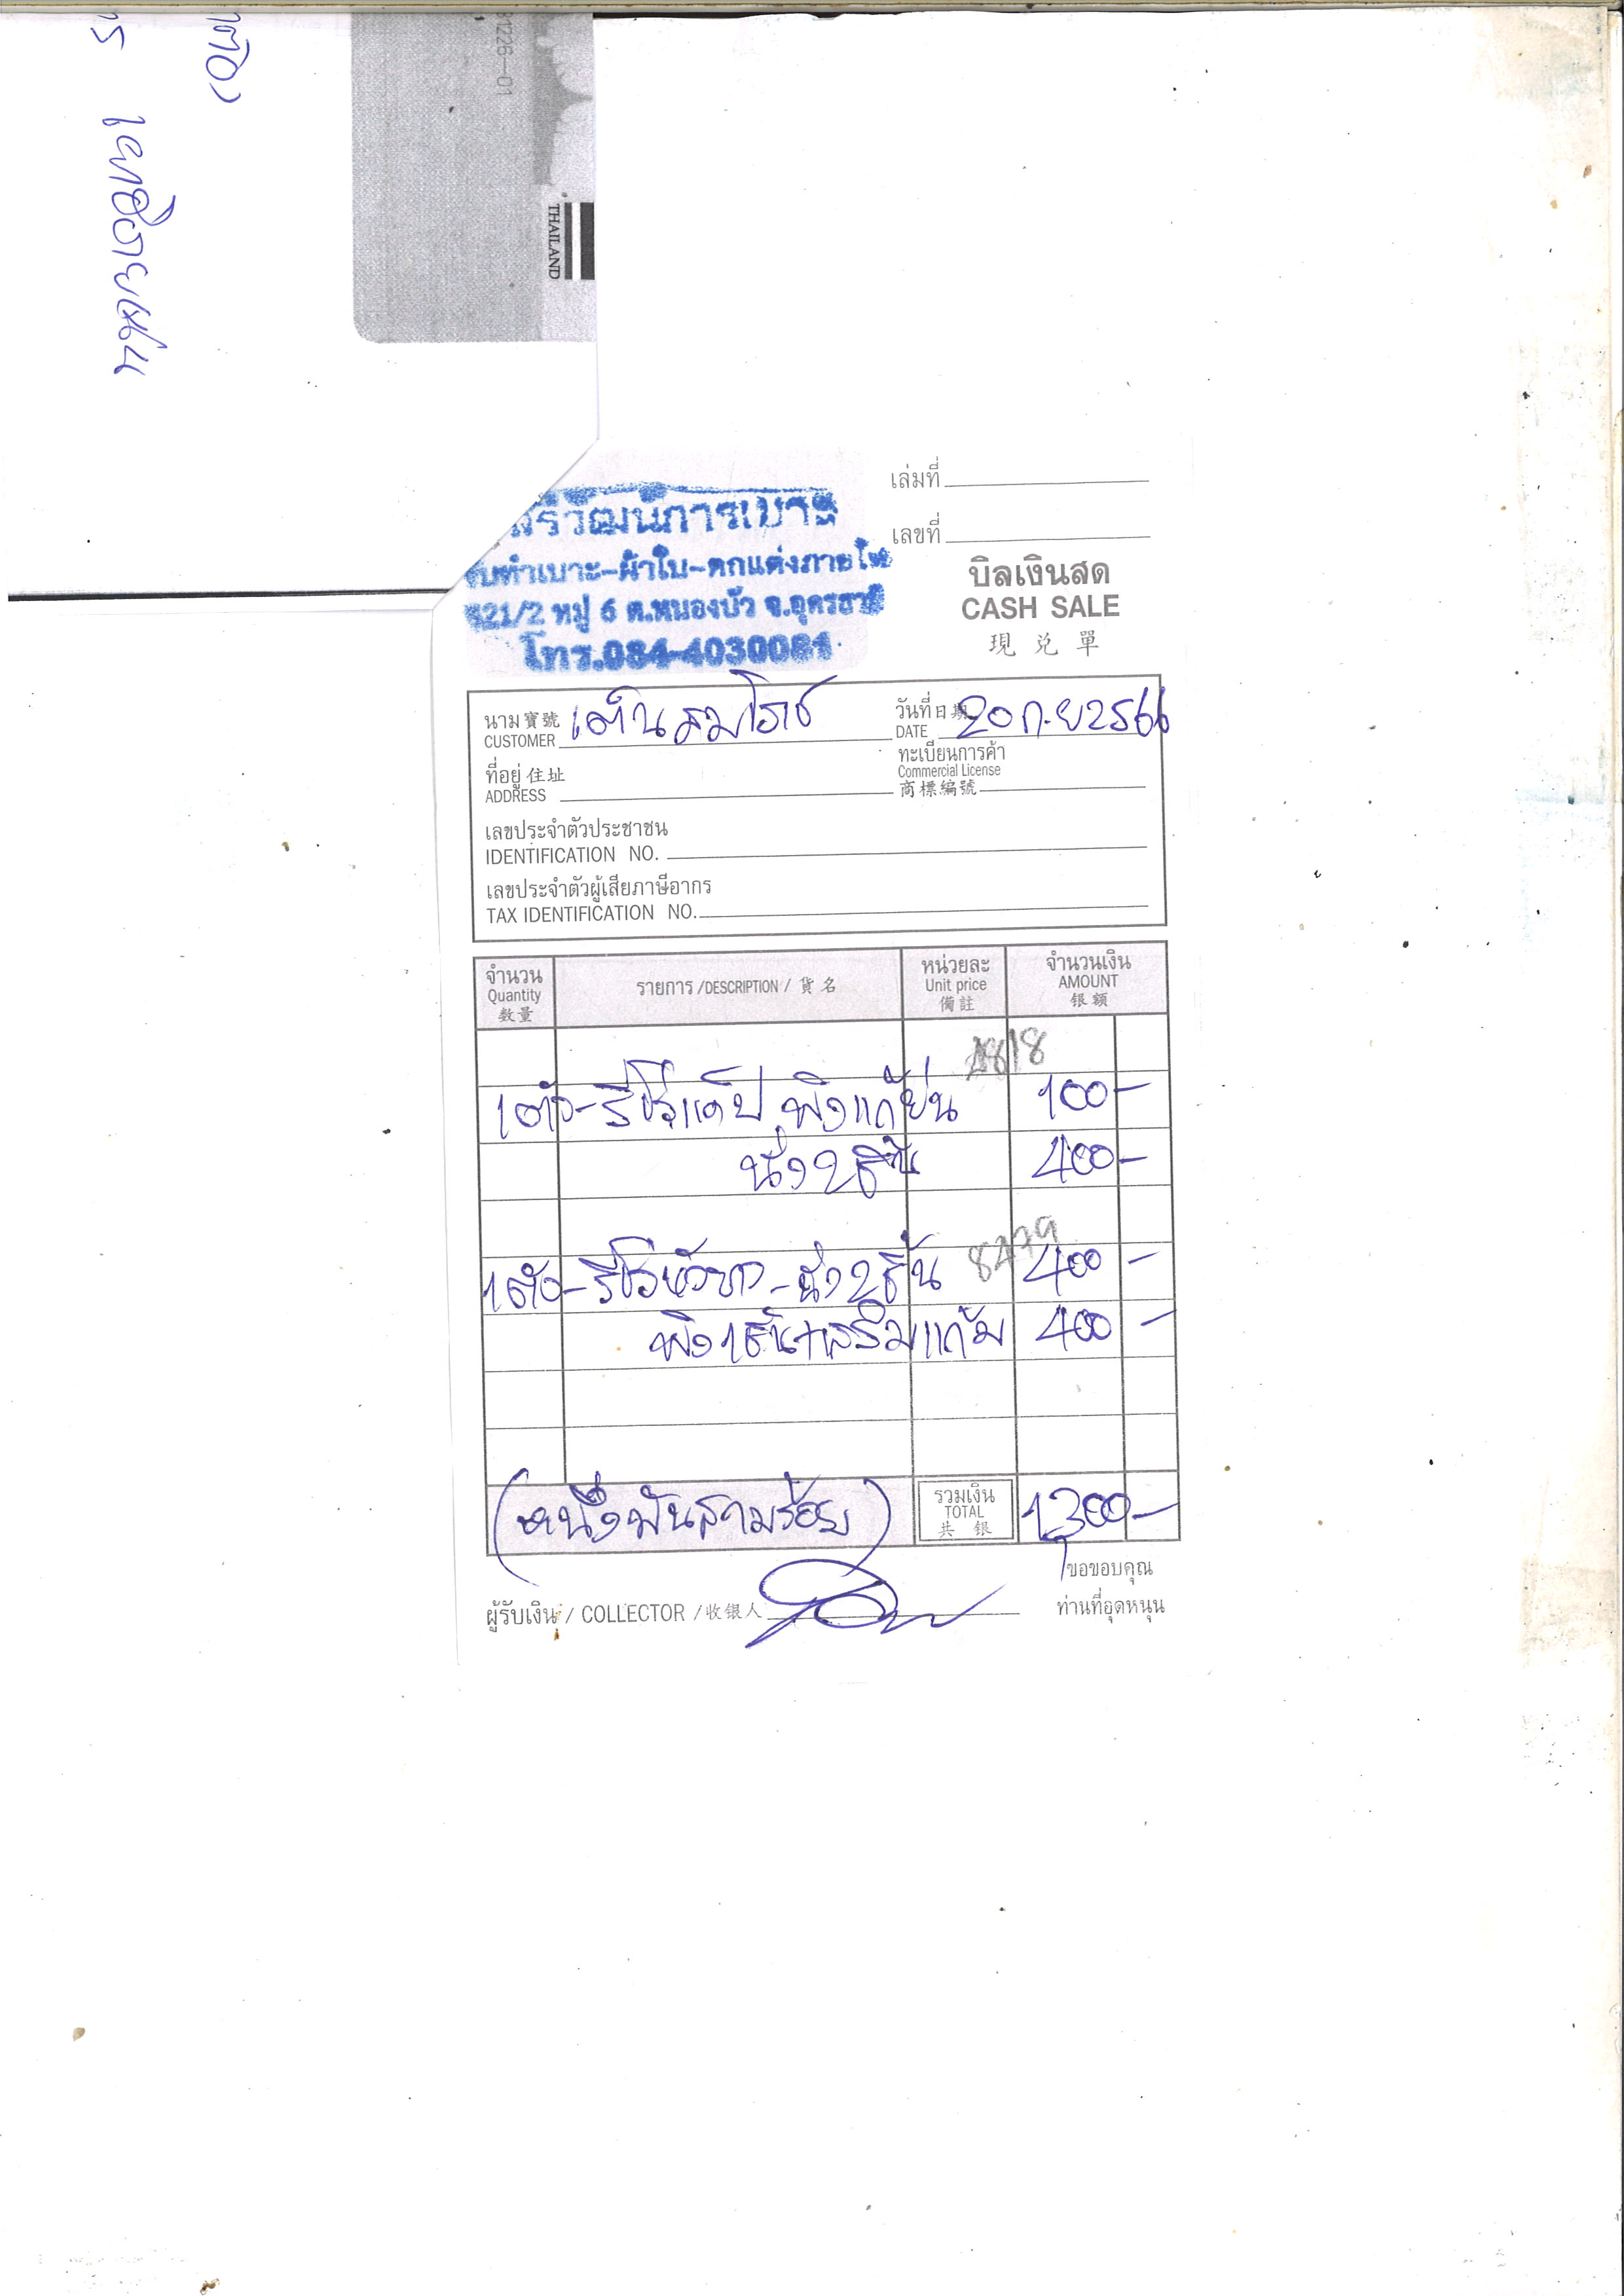 31226-01
THAILAND
ศรีวัฒน์การเบาะ
รับทำเบาะ-ผ้าใบ-ตกแต่งภายใน
421/2 หมู่ 6 ต.หนองบัว จ.อุดรธานี
โทร.084-4030081
เล่มที่
เลขที่
บิลเงินสด
CASH SALE
現 兌 單
นาม 寶號 CUSTOMER เต็นสมโภช
วันที่ 日期 DATE 20 ก.ย 2566
ที่อยู่ 住址 ADDRESS
ทะเบียนการค้า Commercial License 商標編號
เลขประจำตัวประชาชน
IDENTIFICATION NO.
เลขประจำตัวผู้เสียภาษีอากร
TAX IDENTIFICATION NO.
จำนวน Quantity 数量 รายการ /DESCRIPTION / 貨名 หน่วยละ Unit price 備註 จำนวนเงิน AMOUNT 银额
1818
1ตัว-รีโว่แค็ป พิงแก้ย่น 100-
นั่ง 2 ชิ้น 400-
8479
1ตัว-รีโว่หัวขาว-นั่ง 2 ชิ้น 400-
พิง 1 ชิ้น+เสริมแก้ม 400-
(หนึ่งพันสามร้อย) รวมเงิน TOTAL 共 银 1300-
ขอขอบคุณ
ผู้รับเงิน / COLLECTOR / 收银人 ท่านที่อุดหนุน